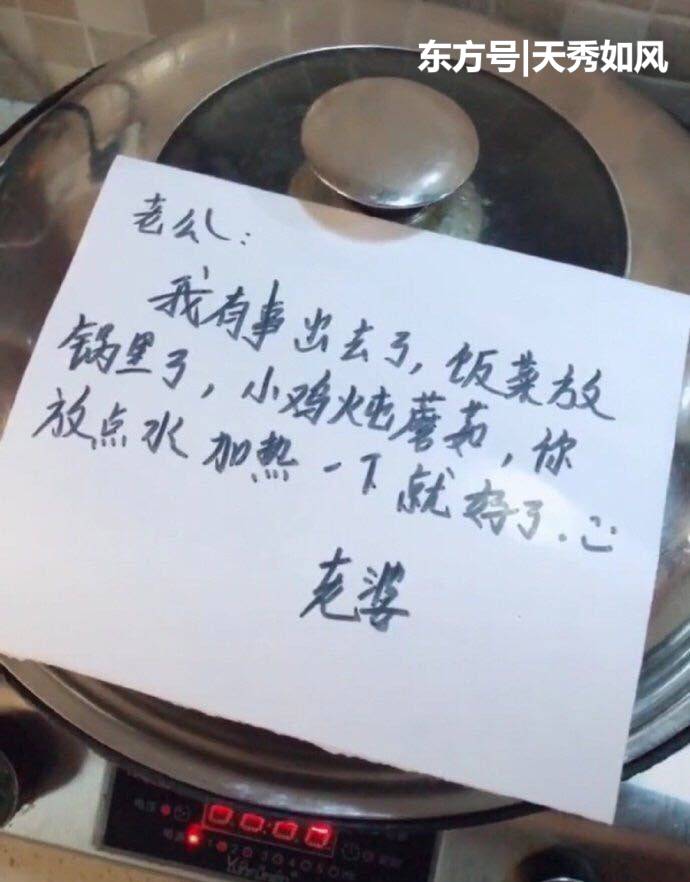 东方号|天秀如风
老公:
我有事出去了,饭菜放
锅里了,小鸡炖蘑菇,你
放点水 加热一下就好了.
老婆